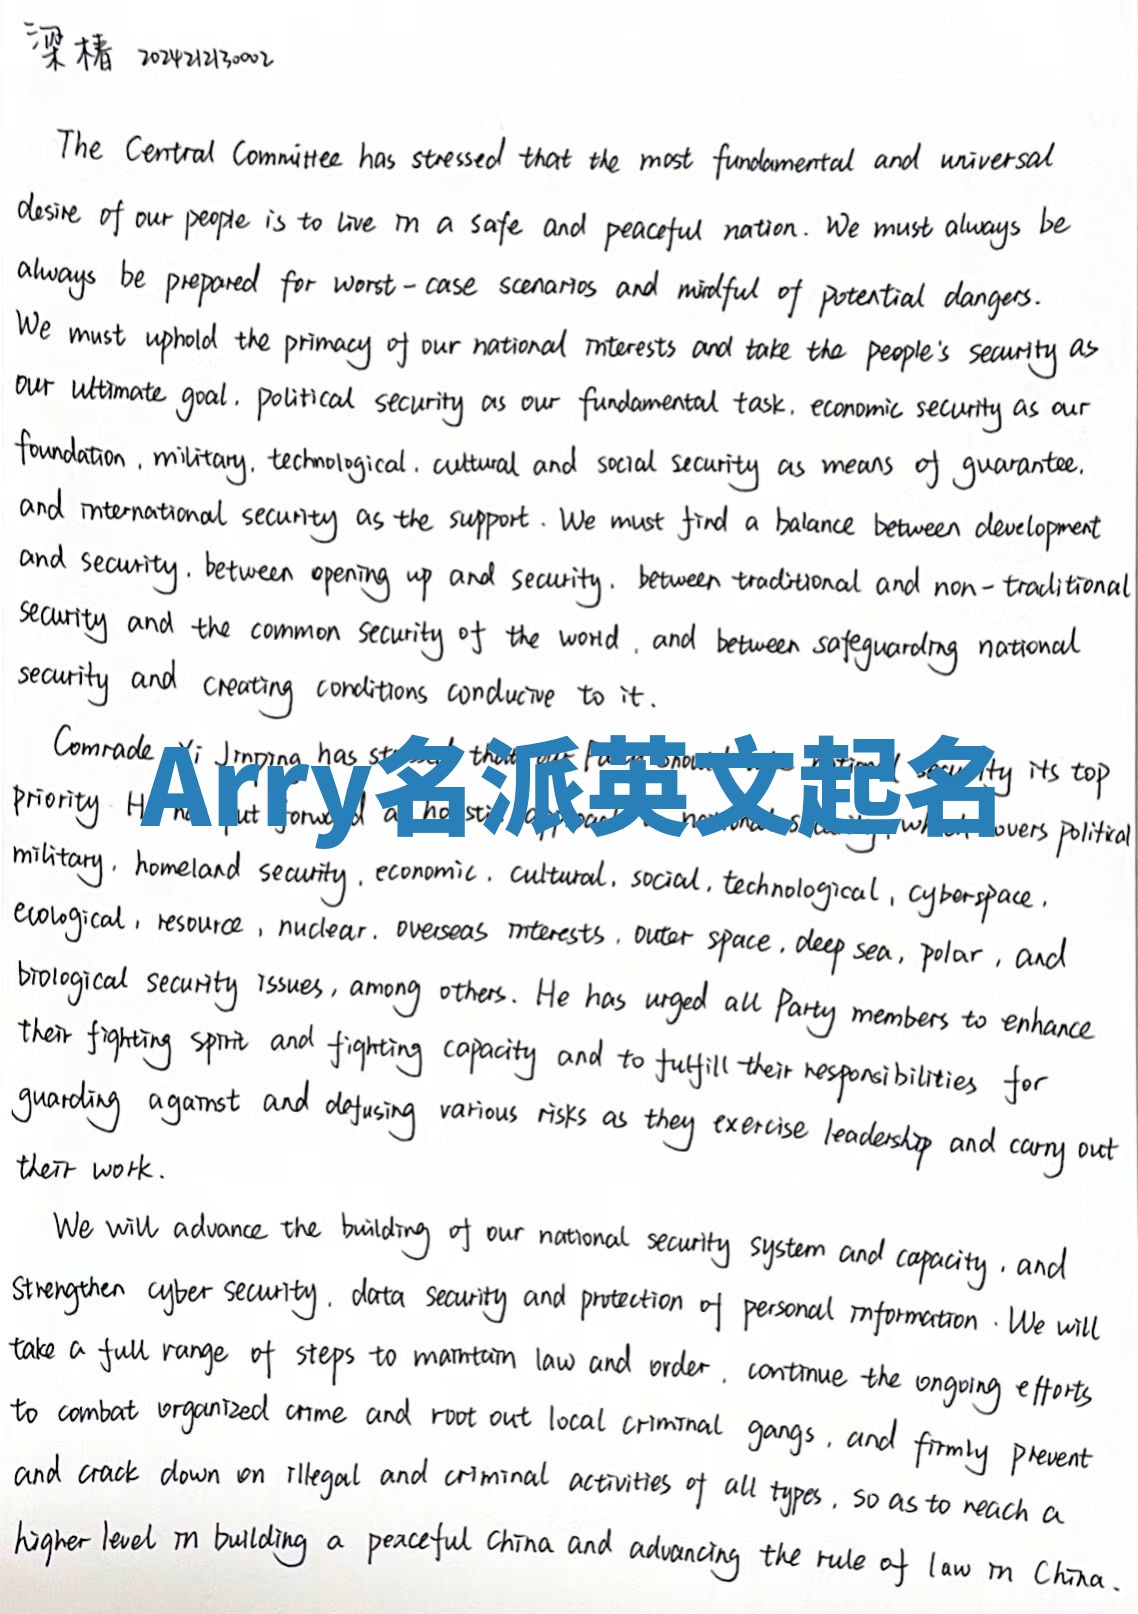 梁椿 2024212130002
The Central Committee has stressed that the most fundamental and universal
desire of our people is to live in a safe and peaceful nation. We must always be
always be prepared for worst-case scenarios and mindful of potential dangers.
We must uphold the primacy of our national interests and take the people's security as
our ultimate goal, political security as our fundamental task, economic security as our
foundation, military, technological, cultural and social security as means of guarantee,
and international security as the support. We must find a balance between development
and security, between opening up and security, between traditional and non-traditional
security and the common security of the world, and between safeguarding national
security and creating conditions conducive to it.
Comrade Xi Jinping has that security its top
Arry名派英文起名
priority put forward a covers political
military, homeland security, economic, cultural, social, technological, cyberspace,
ecological, resource, nuclear, overseas interests, outer space, deep sea, polar, and
biological security issues, among others. He has urged all Party members to enhance
their fighting spirit and fighting capacity and to fulfill their responsibilities for
guarding against and defusing various risks as they exercise leadership and carry out
their work.
We will advance the building of our national security system and capacity, and
strengthen cyber security, data security and protection of personal information. We will
take a full range of steps to maintain law and order, continue the ongoing efforts
to combat organized crime and root out local criminal gangs, and firmly prevent
and crack down on illegal and criminal activities of all types, so as to reach a
higher level in building a peaceful China and advancing the rule of law in China.